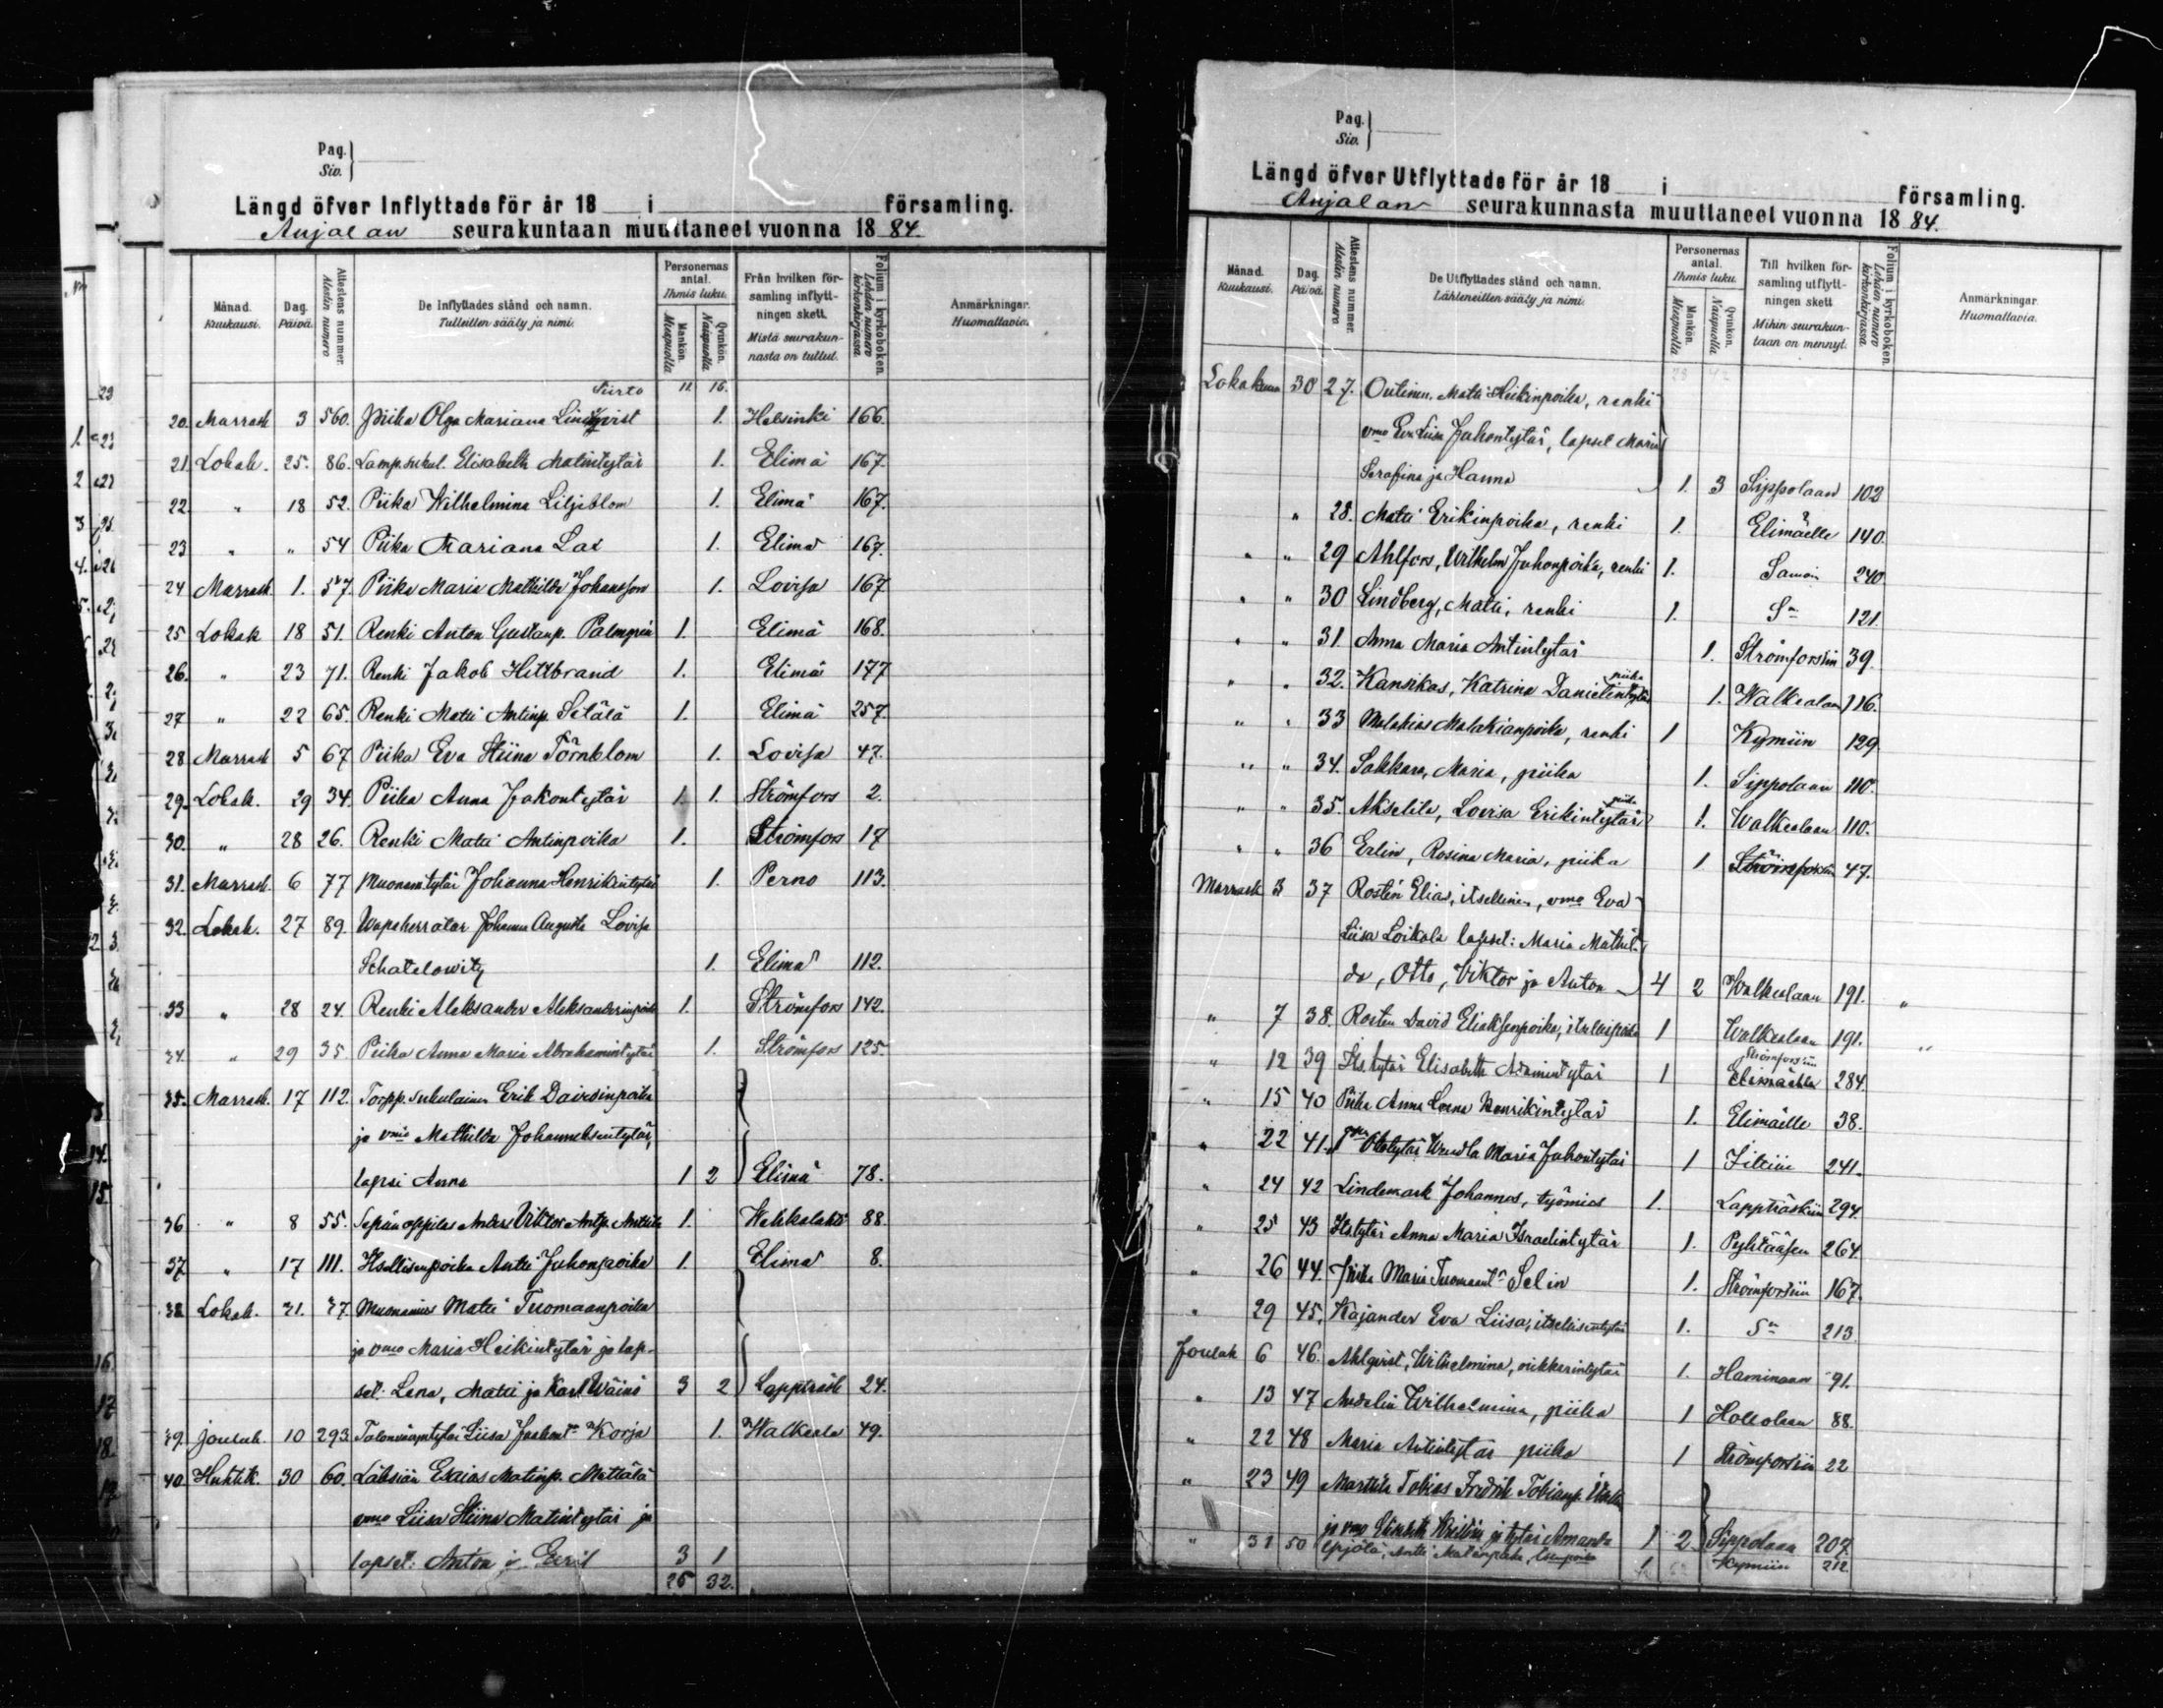 Pag.
Siv.
Längd öfver Inflyttade för år 18 i församling.
Anjalan seurakuntaan muuttaneet vuonna 1884.
Månad. Kuukausi.
Dag. Päivä.
Attestens nummer. Atestin numero
De Inflyttades stånd och namn. Tulleitten sääty ja nimi.
Personernas antal. Ihmis luku.
Mankön. Miespuolia
Qvinkön. Naispuolia
Från hvilken församling inflyttningen skett. Mistä seurakunnasta on tullut.
Folium i kyrkoboken. Lehden numero kirkonkirjassa.
Anmärkningar. Huomattavia.
Siirto 11 16.
20. Marrask 3 560. Piika Olga Mariana Lindqvist 1. Helsinki 166.
21. Lokak. 25. 86. Lamp.sukul. Elisabeth Matintytär 1. Elimä 167.
22. " 18 52. Piika Wilhelmina Liljeblom 1. Elimä 167.
23 " " 54 Piika Mariana Lax 1. Elimä 167.
24 Marrask. 1. 57. Piika Maria Mathilda Johansson 1. Lovisa 167
25 Lokak 18 51. Renki Anton Gustanp. Palmgren 1. Elimä 168.
26. " 23 71. Renki Jakob Hiltbrand 1. Elimä 177
27 " 22 65. Renki Matti Antinp. Setälä 1. Elimä 257.
28 Marrask 5 67 Piika Eva Stiina Törnblom 1. Lovisa 47.
29. Lokak. 29 34. Piika Anna Jakontytär 1. 1. Strömfors 2.
30. " 28 26. Renki Matti Antinpoika 1. Strömfors 17
31. Marrask. 6 77 Muonam.tytär Johanna Henrikintytär 1. Perno 113.
32. Lokak. 27 89. Wapaherratar Johanna Augusta Lovisa
Schatelowitz 1. Elimä 112.
33 " 28 24. Renki Aleksander Aleksanderinpoika 1. Strömfors 142.
34. " 29 35. Piika Anna Maria Abrahamintytär 1. Strömfors 125.
35. Marrask. 17 112. Torpp. sukulainen Erik Davidinpoika
ja vmo Mathilda Johanneksentytär,
lapsi Anna 1 2 Elimä 78.
36 " 8 55. Sepän oppilas Anders Viktor Antp. Anttila 1. Wehkalahti 88.
37 " 17 111. Itsellisenpoika Antti Juhonpoika 1. Elimä 8.
38 Lokak. 31. 37. Muonamies Matti Tuomaanpoika
ja vmo Maria Heikintytär ja lap-
set: Lena, Matti ja Karl Wäinö 3 2 Lappträsk 24.
39. Jouluk. 10 293. Liisa Korja 1. Walkeala 49.
40. Huhtik. 30 60. Esaias Matinp. Mettälä
vmo Liisa Stiina Matintytär ja
lapset: Anton ja Eeril 3 1
25 32.
Pag.
Siv.
Längd öfver Utflyttade för år 18 i församling.
Anjalan seurakunnasta muuttaneet vuonna 1884.
Månad. Kuukausi.
Dag. Päivä.
Attestens nummer. Atestin numero
De Utflyttades stånd och namn. Lähteneitten sääty ja nimi.
Personernas antal. Ihmis luku.
Mankön. Miespuolia
Qvinkön. Naispuolia
Till hvilken församling utflyttningen skett. Mihin seurakuntaan on mennyt.
Folium i kyrkoboken. Lehden numero kirkonkirjassa.
Anmärkningar. Huomattavia.
Lokakuun 30 27. Outinen, Matti Heikinpoika, renki
vmo Eva Liisa Juhontytär, lapset Maria
Serafina ja Hanna 1. 3 Sippolaan 102
" 28. Matti Erikinpoika, renki 1. Elimäelle 140.
" " 29 Ahlfors, Wilhelm Juhonpoika, renki 1. Samoin 240
" " 30 Lindberg, Matti, renki 1. Sn 121.
" " 31. Anna Maria Antintytär 1. Strömforsiin 39.
" " 32. Kansikas, Katrina Danielintytär piika 1. Walkealaan 116.
" " 33 Malakias Malakianpoika, renki 1 Kymiin 129
" " 34. Sakkara, Maria, piika 1. Sippolaan 110.
" " 35. Akselila, Lovisa Erikintytär piika 1. Walkealaan 110.
" " 36 Erlin, Rosina Maria, piika 1 Strömforsiin 47.
Marrask 3 37 Rostén Elias, itsellinen, vmo Eva
Liisa Loikala lapset: Maria Mathil-
da, Otto, Viktor ja Anton 4 2 Walkealaan 191. "
" 7 38. Rosten David Eliaksenpoika, 1 Walkealaan 191. "
" 12 39 Its. tytär Elisabeth Adamintytär 1 Strömforsiin Elimäelle 284.
" 15 40 Piika Anna Leena Henrikintytär 1. Elimäelle 38.
" 22 41. Wendla Maria Juhontytär 1 Iittiin 241.
" 24 42 Lindemark Johannes, työmies 1. Lappträskiin 294.
" 25 43 Its tytär Anna Maria Israelintytär 1. Pyhtääsen 264.
" 26 44. Piika Maria Tuomaant. Selin 1. Strömforsiin 167.
" 29 45. Kajander Eva Liisa, itsellisentytär 1. Sn 213.
Jouluk 6 46. Ahlqvist, Wilhelmina, nikkarintytär 1. Haminaan 91.
" 13 47 Andelin Wilhelmina, piika 1 Hollolaan 88.
" 22 48 Maria Antintytär piika 1 Strömforsiin 22
" 23 49 Marttila Tobias Fredrik Tobianp.
ja vmo Elisabeth ja tytär Amanda 1 2 Sippolaan 207.
" 31 50 Antti Matinpoika, 1 Kymiin 212.